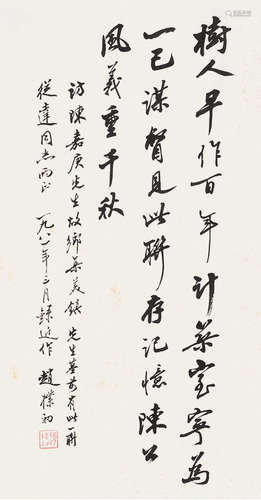 樹人早作百年計築室寧為
一己謀見此聯存記憶陳公
風義重千秋
訪陳嘉庚先生故鄉集美鎮先生墓前有此一聯
從達同志正 一九八一年三月錄近作 趙樸初